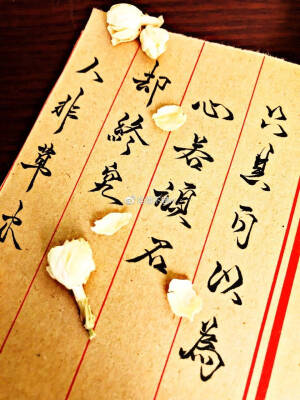 只可以為
心若頑石
却終究
人非草木